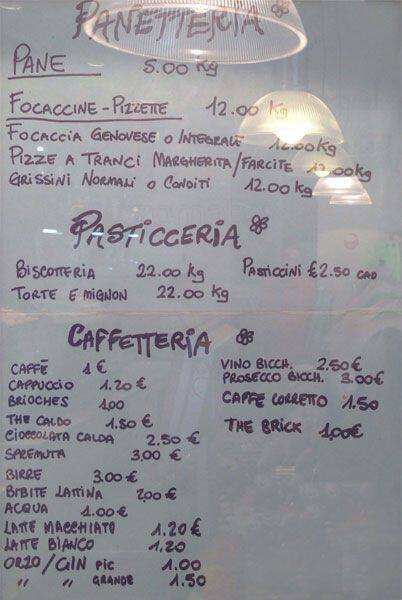 PANETTERIA
PANE 5.00 Kg
FOCACCINE-PIZZETTE 12.00 Kg
FOCACCIA GENOVESE O INTEGRALE 12.00 Kg
PIZZE A TRANCI MARGHERITA/FARCITE 12.00 Kg
GRISSINI NORMALI O CONDITI 12.00 Kg
PASTICCERIA
BISCOTTERIA 22.00 Kg PASTICCINI € 2.50 CAD
TORTE E MIGNON 22.00 Kg
CAFFETTERIA
CAFFÈ 1 €
CAPPUCCIO 1.20 €
BRIOCHES 1,00
THE CALDO 1.50 €
CIOCCOLATA CALDA 2.50 €
SPREMUTA 3,00 €
BIRRE 3.00 €
BIBITE LATTINA 2,00 €
ACQUA 1.00 €
LATTE MACCHIATO 1.20 €
LATTE BIANCO 1.20
ORZO/GIN PIC 1.00
" " GRANDE 1.50
VINO BICCH. 2.50 €
PROSECCO BICCH. 3.00 €
CAFFE CORRETTO 1.50
THE BRICK 1,00 €